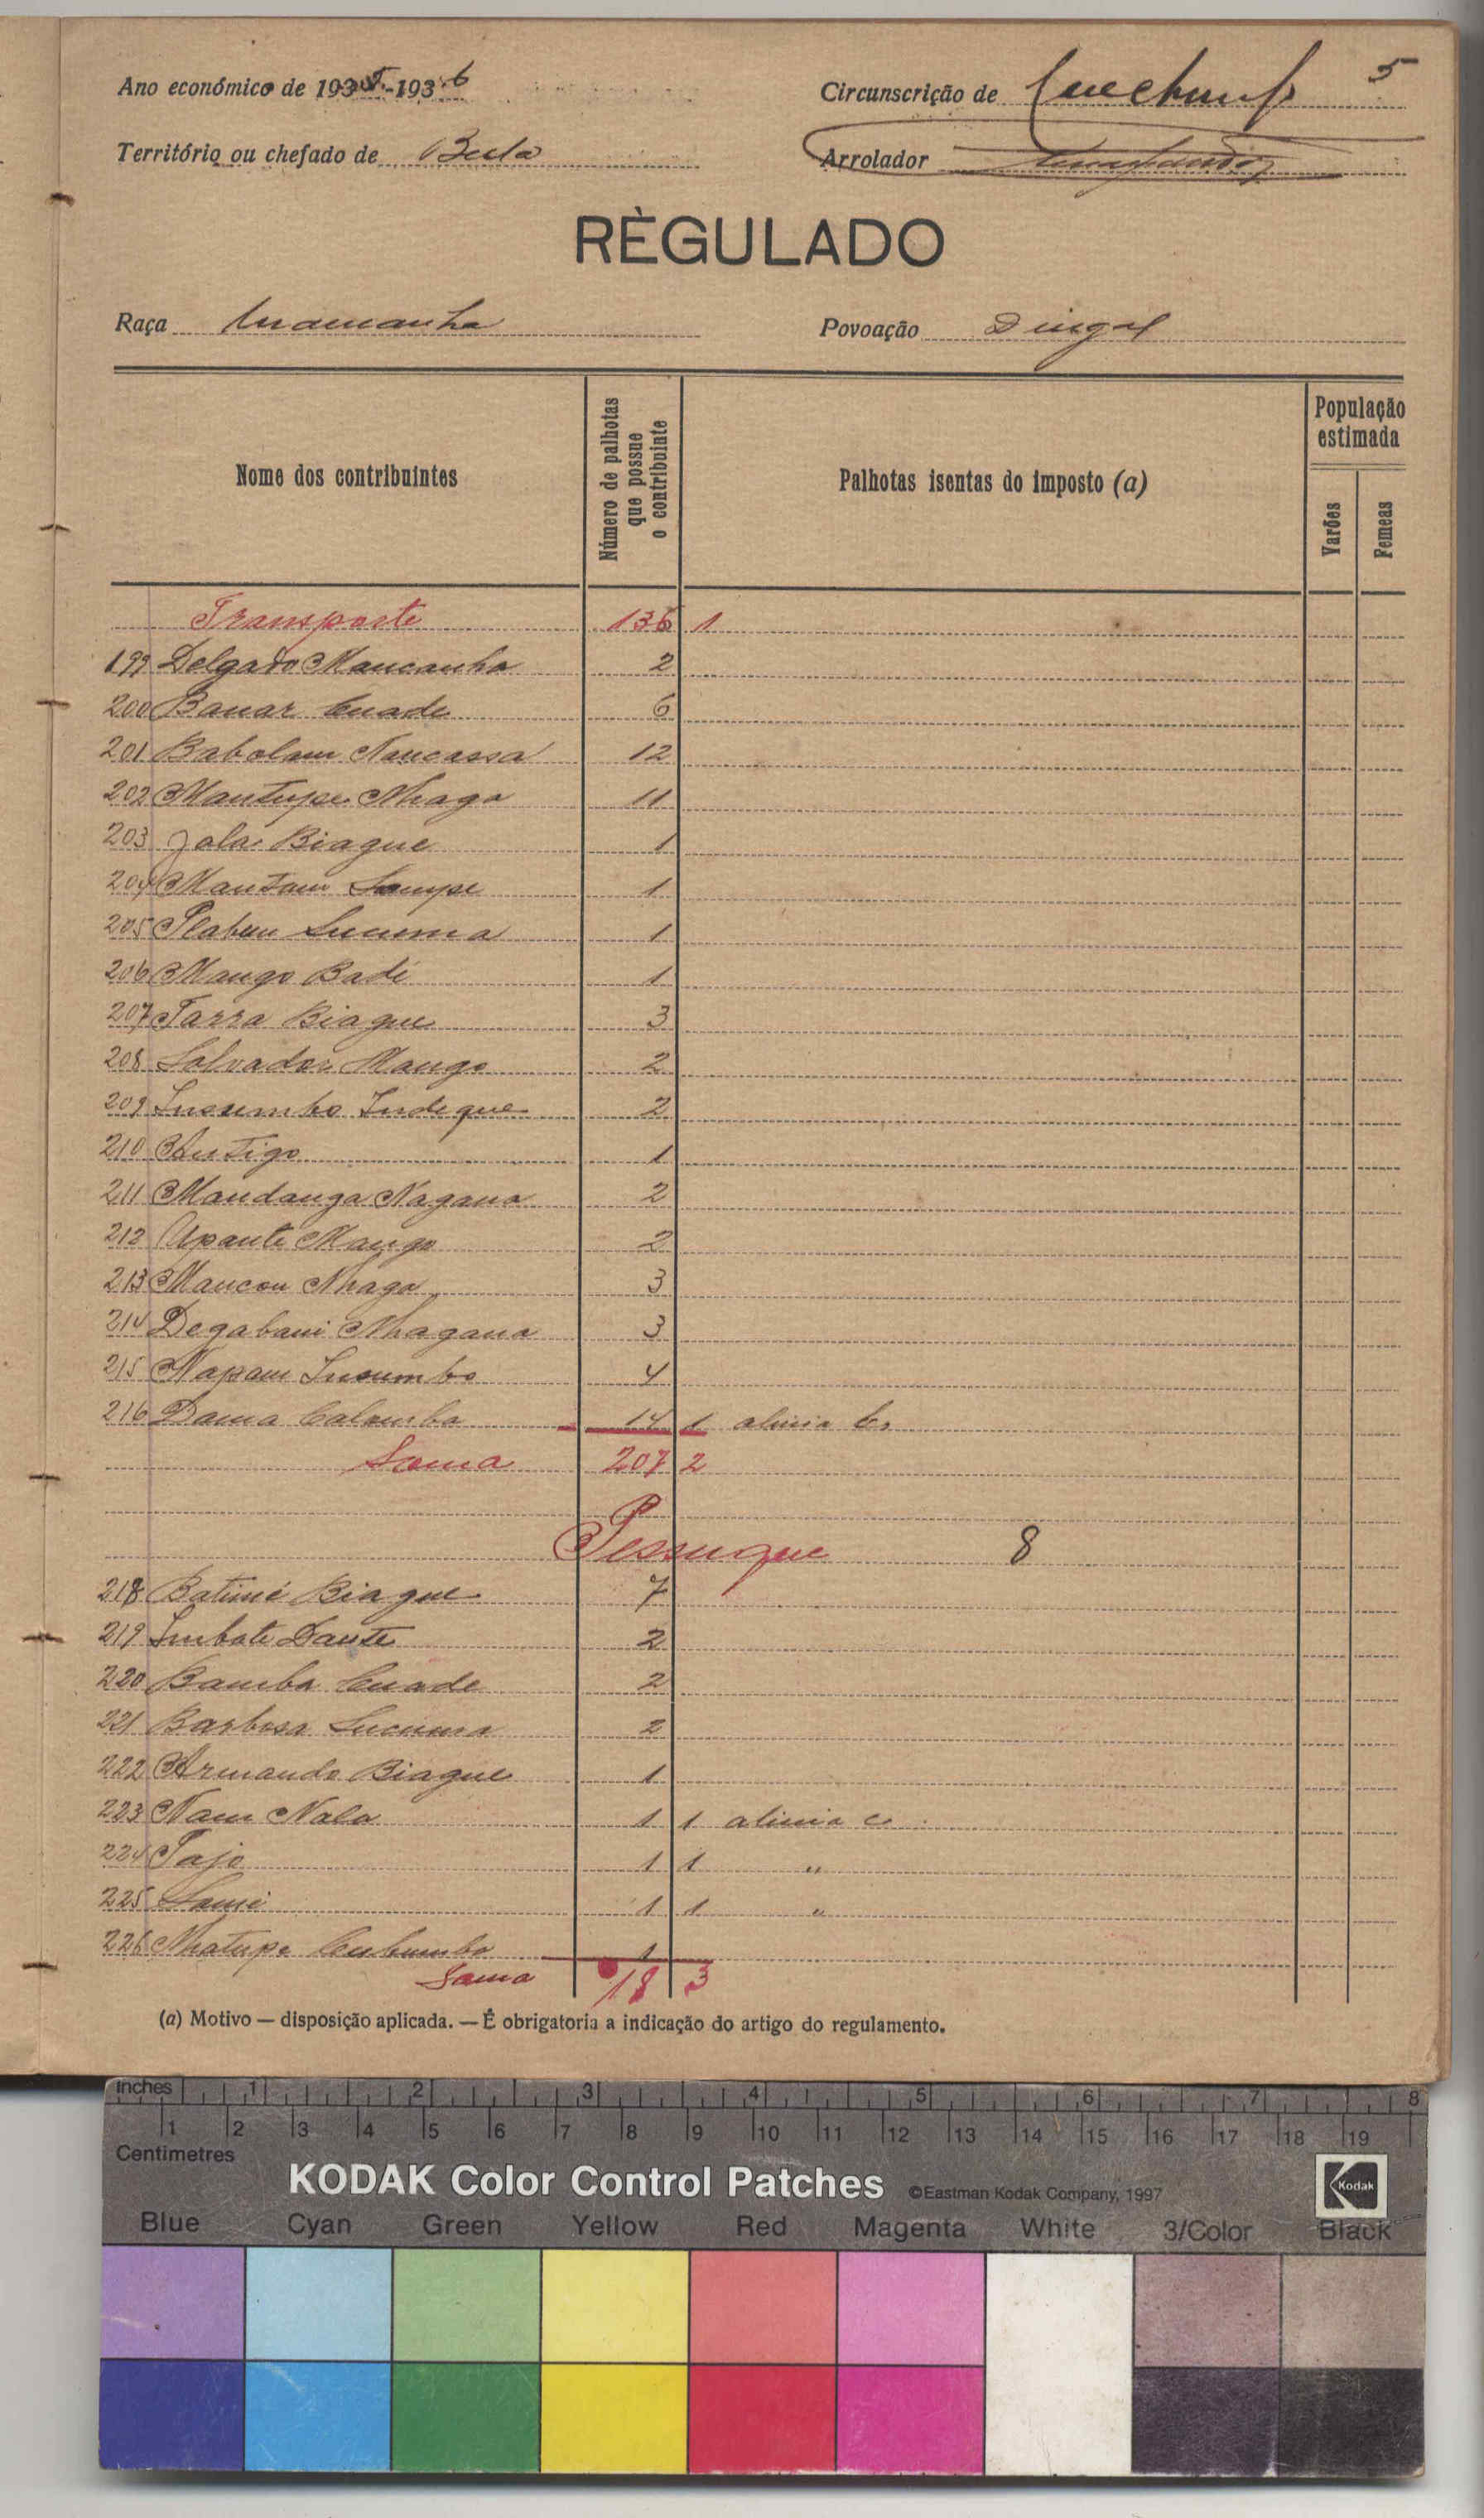 5
Ano económico de 1935-1936 Circunscrição de
Território ou chefado de Bula Arrolador
RÈGULADO
Raça Mancanha Povoação Dingal
Nome dos contribuintes
Número de palhotas que possue o contribuinte
Palhotas isentas do imposto (a)
População estimada
Varões
Femeas
Transporte 136 1
199 Delgado Mancanha 2
200 Banar Cuade 6
201 Babolam Nancassa 12
202 Mantupe Nhaga 11
203 Jala Biague 1
204 Mantam Sampe 1
205 Plabun Lucuma 1
206 Mango Badi 1
207 Tarra Biague 3
208 Salvador Mango 2
209 Insumbo Indeque 2
210 Antigo 1
211 Mandanga Nagana 2
212 Upante Mango 2
213 Mancou Nhaga 3
214 Degabani Nhagana 3
215 Napam Insumbo 4
216 Dama Calomba 14 1 alinia b,
Soma 207 2
Pessugue 8
218 Batimé Biague 7
219 Imbate Dante 2
220 Bamba Cuade 2
221 Barbosa Lucuma 2
222 Armando Biague 1
223 Nam Nala 1 1 alinia c
224 Tajo 1 1 "
225 Sami 1 1 "
226 Nhatupe Cubumba 1
Soma 18 3
(a) Motivo — disposição aplicada. — É obrigatoria a indicação do artigo do regulamento.
Inches 1 2 3 4 5 6 7 8
1 2 3 4 5 6 7 8 9 10 11 12 13 14 15 16 17 18 19
Centimetres
KODAK Color Control Patches ©Eastman Kodak Company, 1997 Kodak
Blue Cyan Green Yellow Red Magenta White 3/Color Black